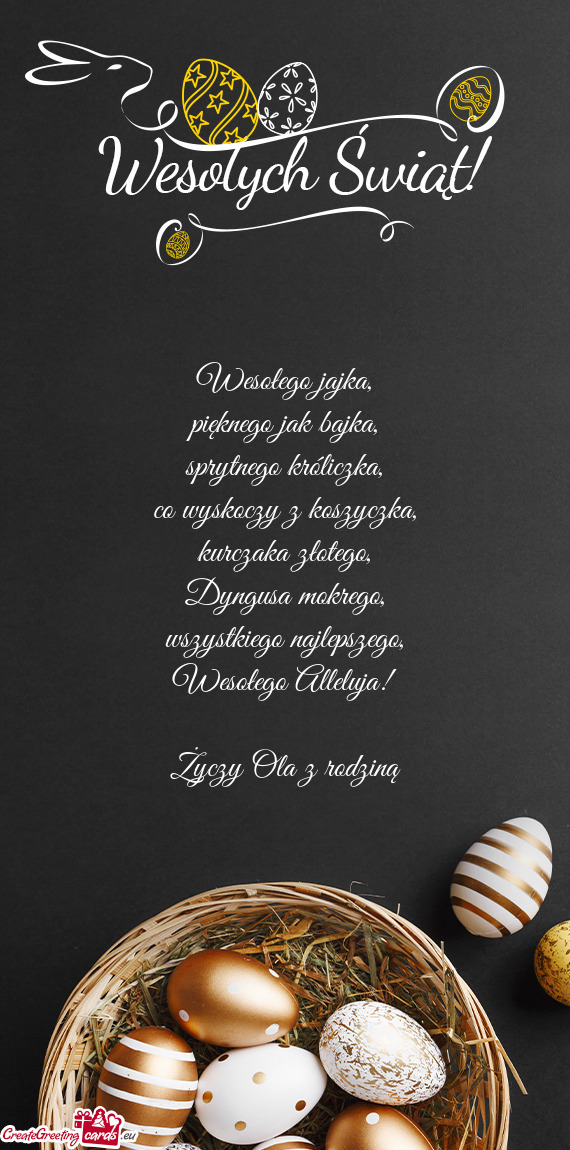 Wesołych Świąt!
Wesołego jajka,
pięknego jak bajka,
sprytnego króliczka,
co wyskoczy z koszyczka,
kurczaka złotego,
Dyngusa mokrego,
wszystkiego najlepszego,
Wesołego Alleluja!
Życzy Ola z rodziną
CreateGreeting cards .eu